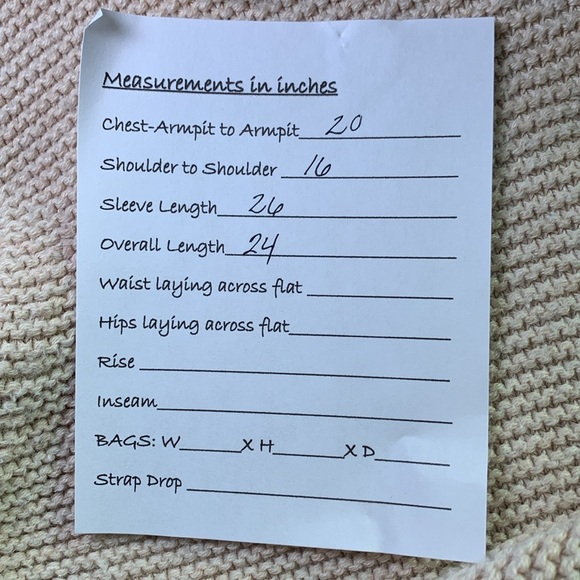 Measurements in inches
Chest-Armpit to Armpit 20
Shoulder to Shoulder 16
Sleeve Length 26
Overall Length 24
Waist laying across flat
Hips laying across flat
Rise
Inseam
BAGS: W______X H______X D______
Strap Drop